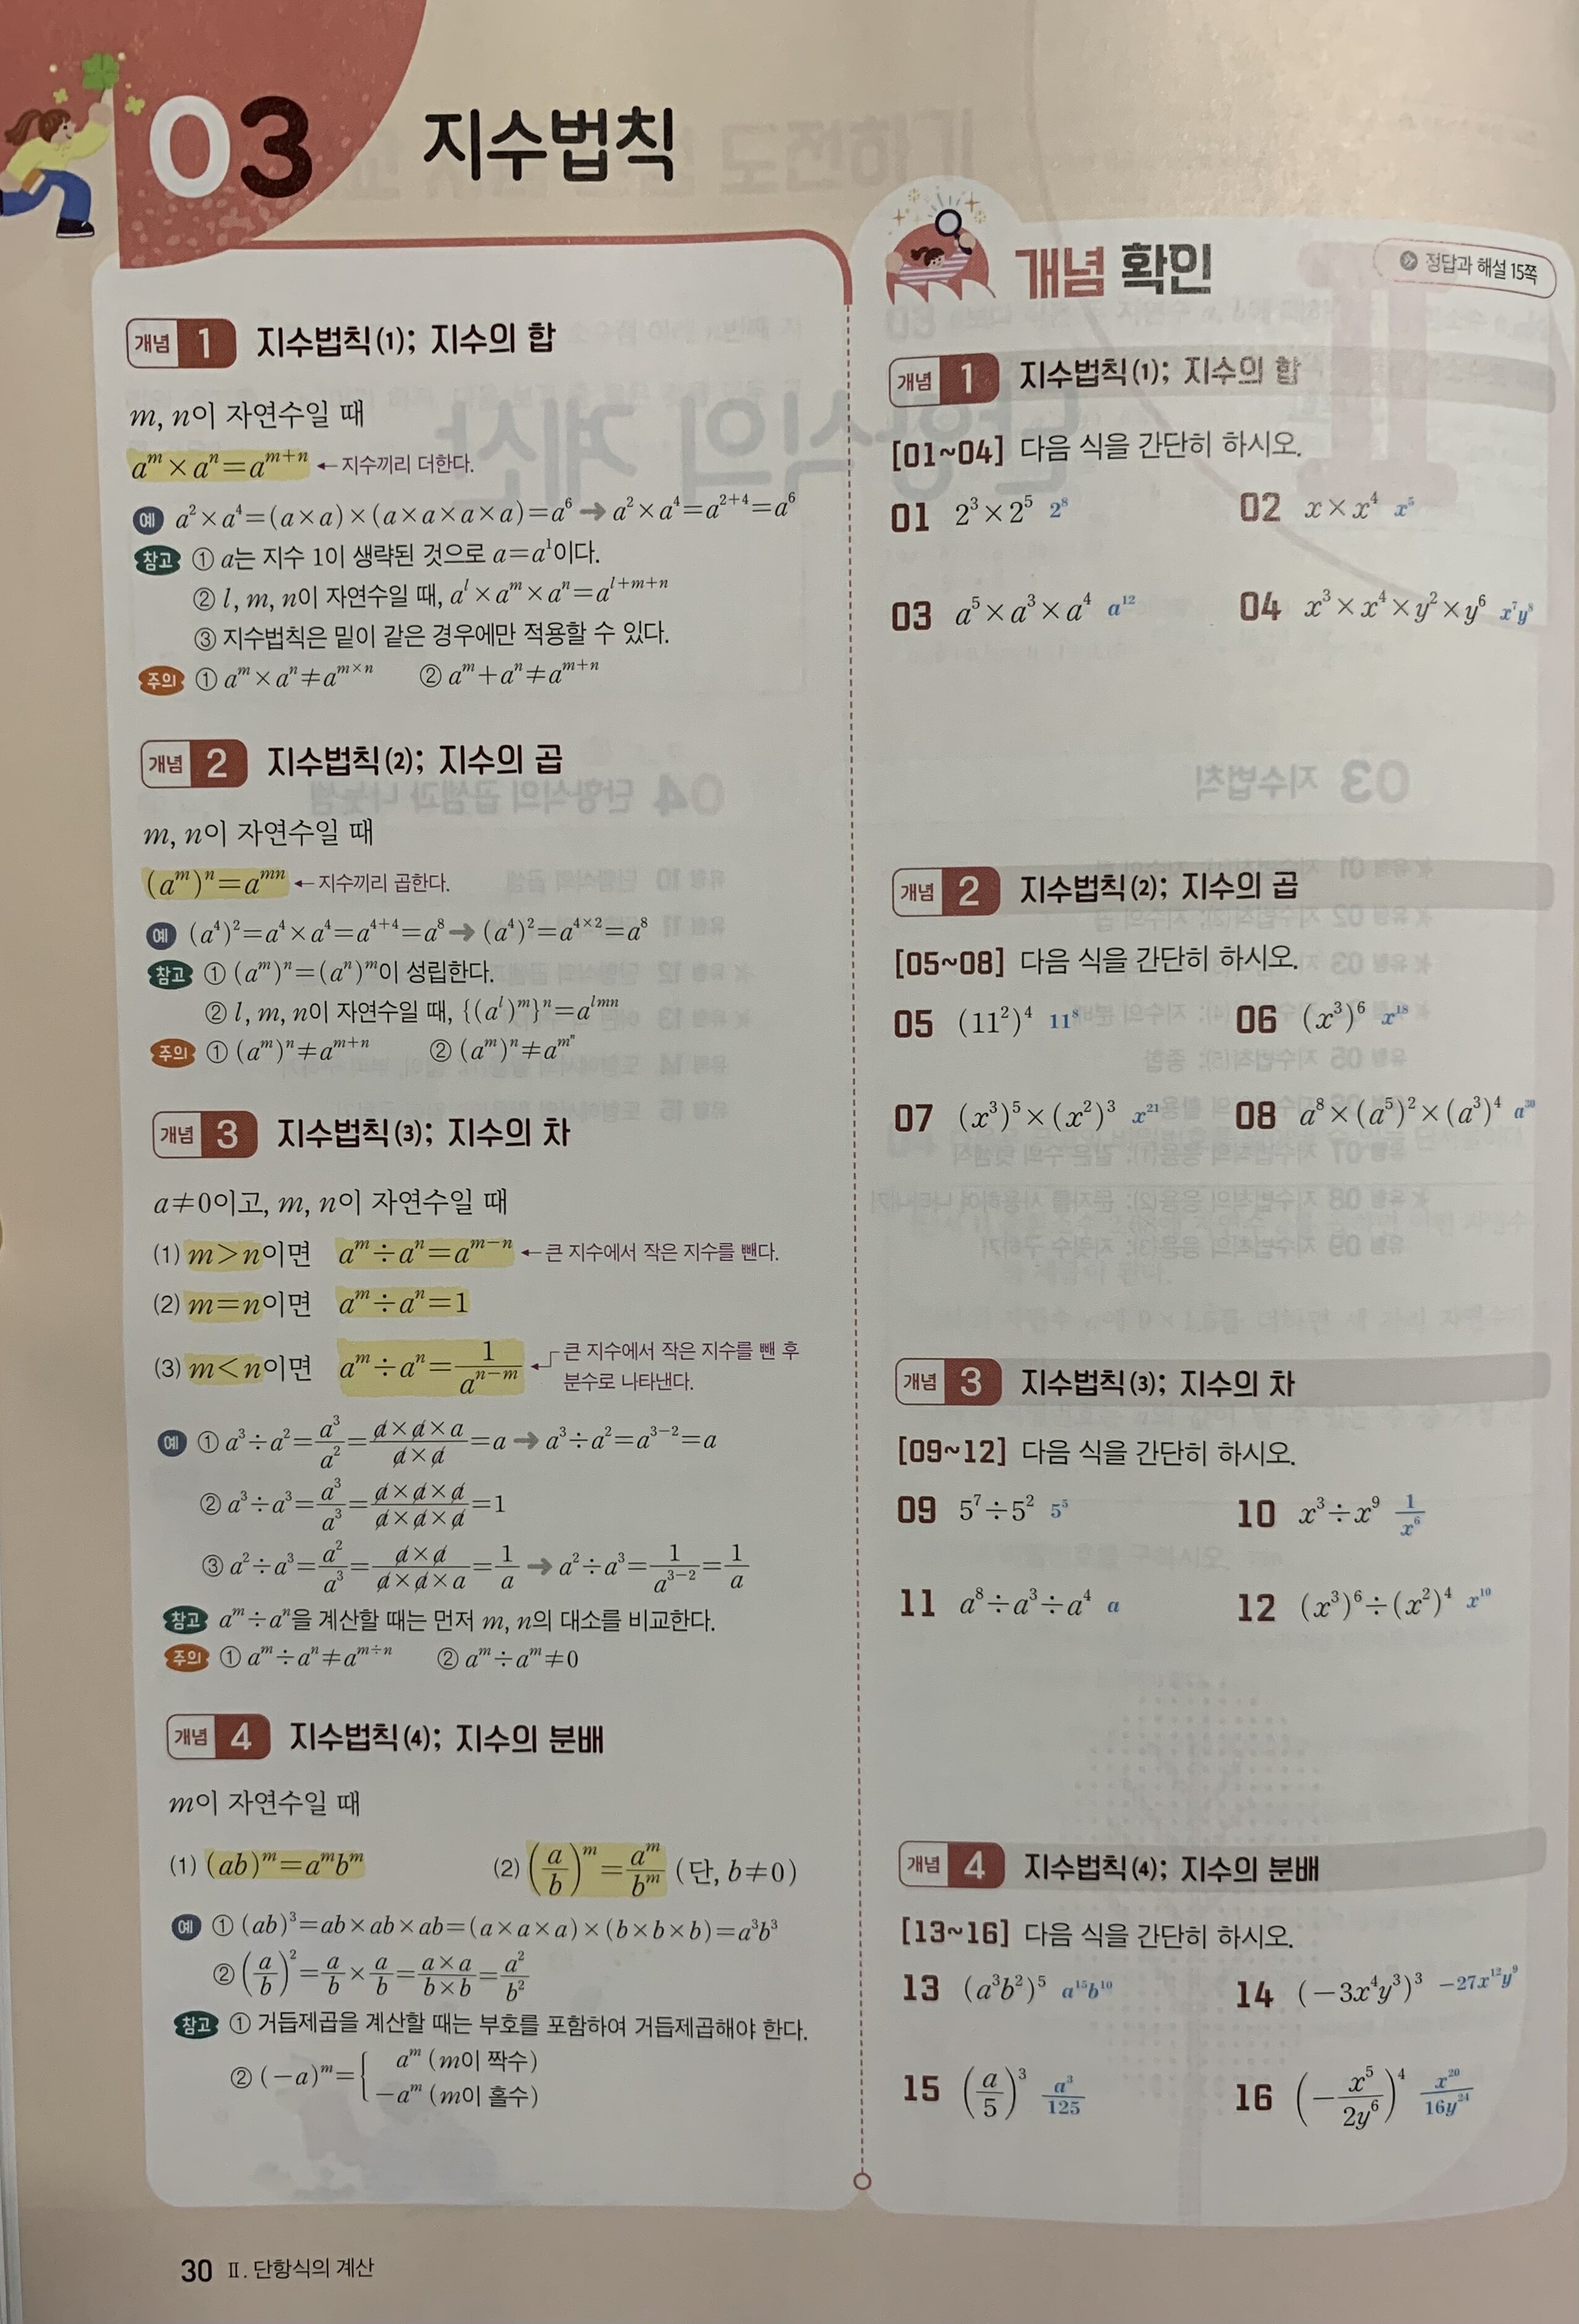 03 지수법칙
개념 1 지수법칙(1); 지수의 합
m, n이 자연수일 때
aᵐ×aⁿ=aᵐ⁺ⁿ ←지수끼리 더한다.
예 a²×a⁴=(a×a)×(a×a×a×a)=a⁶ ➔ a²×a⁴=a²⁺⁴=a⁶
참고 ① a는 지수 1이 생략된 것으로 a=a¹이다.
② l, m, n이 자연수일 때, aˡ×aᵐ×aⁿ=aˡ⁺ᵐ⁺ⁿ
③ 지수법칙은 밑이 같은 경우에만 적용할 수 있다.
주의 ① aᵐ×aⁿ≠a^(m×n) ② aᵐ+aⁿ≠aᵐ⁺ⁿ
개념 2 지수법칙(2); 지수의 곱
m, n이 자연수일 때
(aᵐ)ⁿ=aᵐⁿ ←지수끼리 곱한다.
예 (a⁴)²=a⁴×a⁴=a⁴⁺⁴=a⁸ ➔ (a⁴)²=a^(4×2)=a⁸
참고 ① (aᵐ)ⁿ=(aⁿ)ᵐ이 성립한다.
② l, m, n이 자연수일 때, {(aˡ)ᵐ}ⁿ=aˡᵐⁿ
주의 ① (aᵐ)ⁿ≠aᵐ⁺ⁿ ② (aᵐ)ⁿ≠a^(m^n)
개념 3 지수법칙(3); 지수의 차
a≠0이고, m, n이 자연수일 때
(1) m>n이면 aᵐ÷aⁿ=aᵐ⁻ⁿ ←큰 지수에서 작은 지수를 뺀다.
(2) m=n이면 aᵐ÷aⁿ=1
(3) m<n이면 aᵐ÷aⁿ=1/aⁿ⁻ᵐ ←큰 지수에서 작은 지수를 뺀 후
분수로 나타낸다.
예 ① a³÷a²=a³/a²=(a×a×a)/(a×a)=a ➔ a³÷a²=a³⁻²=a
② a³÷a³=a³/a³=(a×a×a)/(a×a×a)=1
③ a²÷a³=a²/a³=(a×a)/(a×a×a)=1/a ➔ a²÷a³=1/a³⁻²=1/a
참고 aᵐ÷aⁿ을 계산할 때는 먼저 m, n의 대소를 비교한다.
주의 ① aᵐ÷aⁿ≠a^(m÷n) ② aᵐ÷aᵐ≠0
개념 4 지수법칙(4); 지수의 분배
m이 자연수일 때
(1) (ab)ᵐ=aᵐbᵐ (2) (a/b)ᵐ=aᵐ/bᵐ (단, b≠0)
예 ① (ab)³=ab×ab×ab=(a×a×a)×(b×b×b)=a³b³
② (a/b)²=a/b×a/b=(a×a)/(b×b)=a²/b²
참고 ① 거듭제곱을 계산할 때는 부호를 포함하여 거듭제곱해야 한다.
② (-a)ᵐ={ aᵐ (m이 짝수)
-aᵐ (m이 홀수)
개념 확인 정답과 해설 15쪽
개념 1 지수법칙(1); 지수의 합
[01~04] 다음 식을 간단히 하시오.
01 2³×2⁵ 2⁸ 02 x×x⁴ x⁵
03 a⁵×a³×a⁴ a¹² 04 x³×x⁴×y²×y⁶ x⁷y⁸
개념 2 지수법칙(2); 지수의 곱
[05~08] 다음 식을 간단히 하시오.
05 (11²)⁴ 11⁸ 06 (x³)⁶ x¹⁸
07 (x³)⁵×(x²)³ x²¹ 08 a⁸×(a⁵)²×(a³)⁴ a³⁰
개념 3 지수법칙(3); 지수의 차
[09~12] 다음 식을 간단히 하시오.
09 5⁷÷5² 5⁵ 10 x³÷x⁹ 1/x⁶
11 a⁸÷a³÷a⁴ a 12 (x³)⁶÷(x²)⁴ x¹⁰
개념 4 지수법칙(4); 지수의 분배
[13~16] 다음 식을 간단히 하시오.
13 (a³b²)⁵ a¹⁵b¹⁰ 14 (-3x⁴y³)³ -27x¹²y⁹
15 (a/5)³ a³/125 16 (-x⁵/2y⁶)⁴ x²⁰/16y²⁴
30 Ⅱ. 단항식의 계산